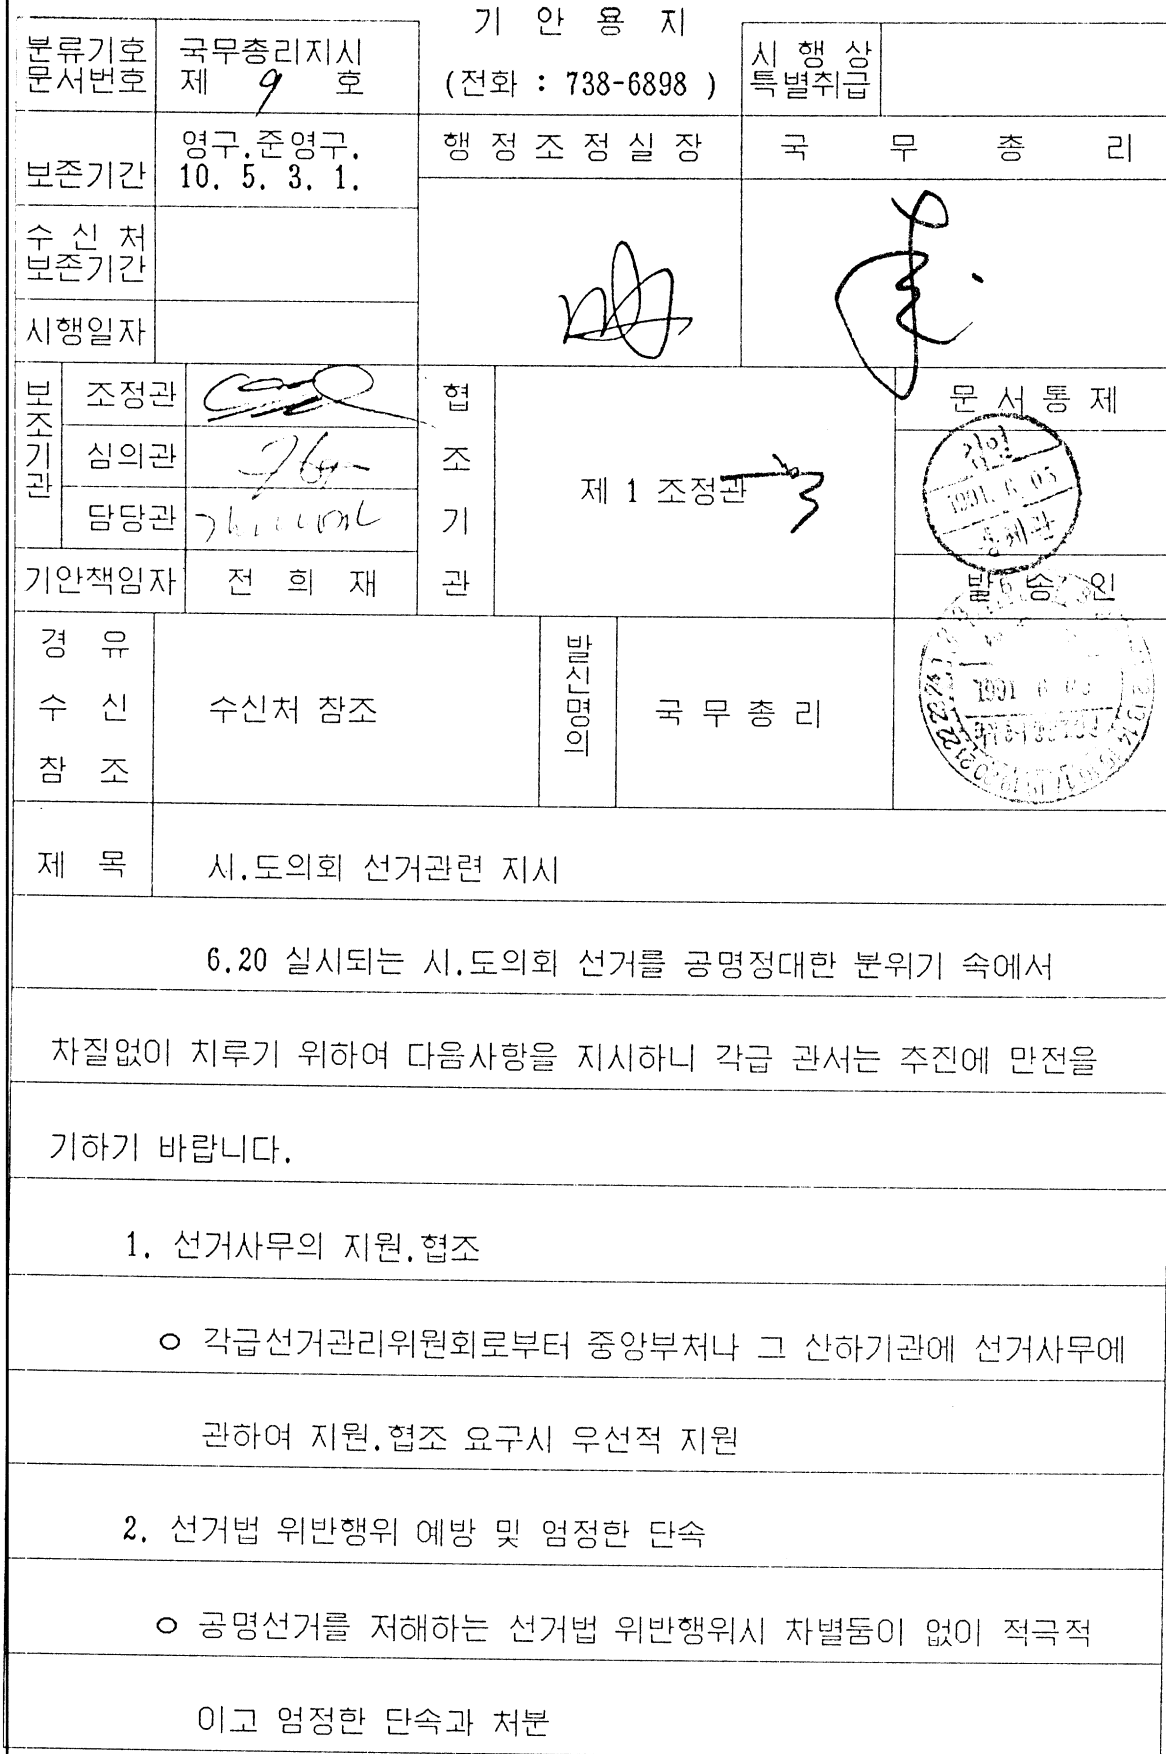 기 안 용 지
분류기호
문서번호
국무총리지시
제 9 호
(전화 : 738-6898 )
시 행 상
특별취급
보존기간
영구.준영구.
10. 5. 3. 1.
행 정 조 정 실 장
국 무 총 리
수 신 처
보존기간
시행일자
보조기관
조정관
심의관
담당관
협조기관
제 1 조정관
문 서 통 제
1991. 6. 03
통제관
기안책임자
전 희 재
발 송 인
경 유
수 신
참 조
수신처 참조
발신명의
국 무 총 리
1991 6 03
제 목
시.도의회 선거관련 지시
6.20 실시되는 시.도의회 선거를 공명정대한 분위기 속에서
차질없이 치루기 위하여 다음사항을 지시하니 각급 관서는 추진에 만전을
기하기 바랍니다.
1. 선거사무의 지원.협조
o 각급선거관리위원회로부터 중앙부처나 그 산하기관에 선거사무에
관하여 지원.협조 요구시 우선적 지원
2. 선거법 위반행위 예방 및 엄정한 단속
o 공명선거를 저해하는 선거법 위반행위시 차별둠이 없이 적극적
이고 엄정한 단속과 처분